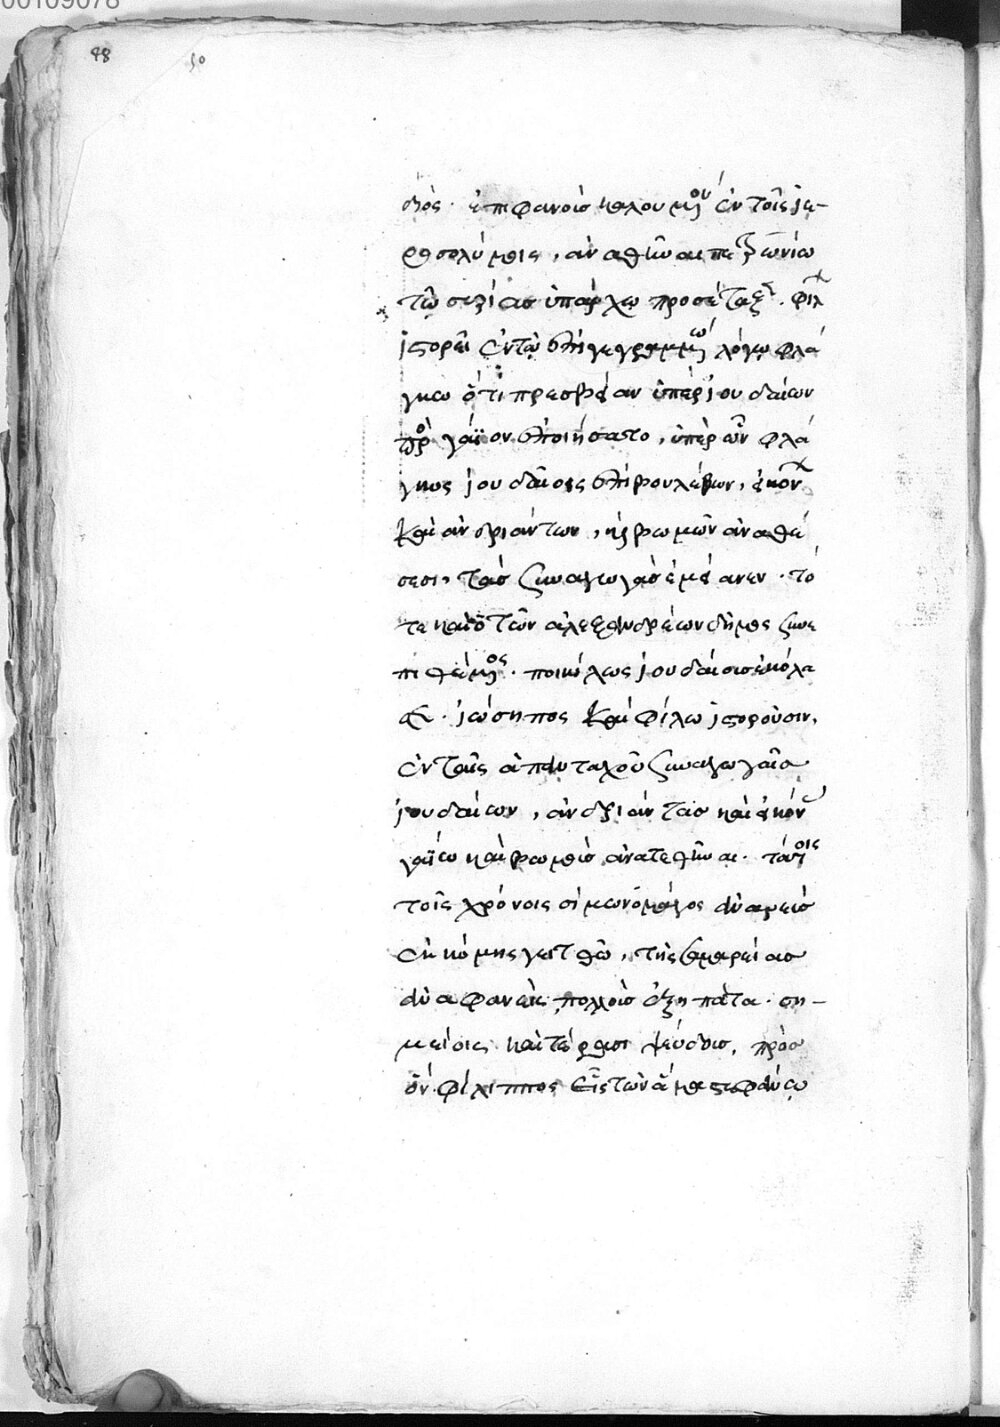 00109078
48 50
διὸς ἐπιφανοῦς καλουμένου ἐν τοῖς ἱε-
ροσολύμοις, ἀναθῆναι πετρωνίω
τῶ συρίας ὑπάρχω προσέταξ. φίλ
ἱστορεῖ ἐν τῶ ἐπιγεγραμμένω λόγω φλά
κκω ὅτι πρεσβείαν ὑπὲρ ἰουδαίων
πρὸ γάϊον ἐποιήσατο, ὑπὲρ ὧν φλά
κκος ἰουδαίοις ἐπιβουλεύων, εἰκόν
καὶ ἀνδριάντων, κὶ βωμῶν ἀναθέ
σεσι, τὰς συναγωγὰς ἐμίανεν. τό
τε καὶ ὁ τῶν ἀλεξανδρέων δῆμος συνε
πιθέμενος. ποικίλως ἰουδαίους ἐκόλα
σε. ἰώσηπος καὶ φίλω ἱστοροῦσιν,
ἐν ταῖς ἁπανταχοῦ συναγωγαῖς
ἰουδαίων, ἀνδριάντας καὶ εἰκόν
γαΐω καὶ βωμοὺς ἀνατεθῆναι. τούτοις
τοῖς χρόνοις σίμων ὁ μάγος σαμαρεὺς
ἐκ κόμης γειτθῶ, τῆς σαμαρείας
ἀναφανεὶς πολλοὺς ἐξηπάτα. ση-
μείοις καὶ τέρασι ψεύδους, πρὸς
ὃν φίλιππος εἷς τῶν ἅμα στεφάνω